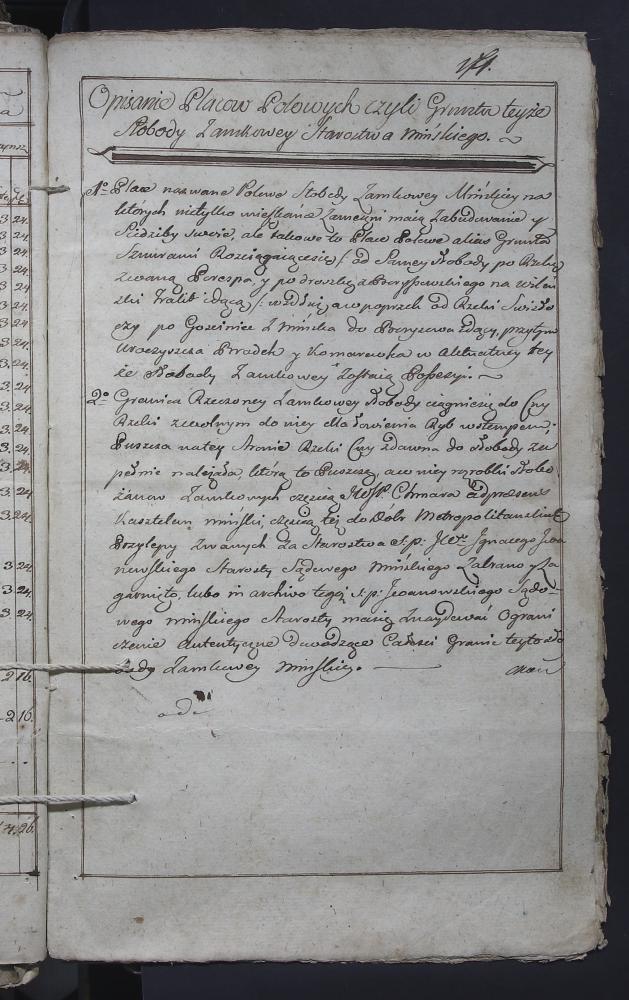 Opisanie Placow Polowych czyli Gruntu teyże
Słobody Zamkowey Starostwa Mińskiego.
1º Place nazwane Polowe Słobody Zamkowey Mińskiey na
których nietylko mieszkanie Zamczyni maią Zabudowanie y
Siedziby Swoie, ale takowe to Place Polowe alias Grunta
Sznurami Rozciągaiącesię /: od Samey Słobody po Rzekę
zwaną Perespa, y po drożkę z Boryssowskiego na Wileń
ski Trakt idącą :/ wzdłuż, a w poprzek od Rzeki Swisło
czy po Gosciniec z Mińska do Borysowa idący, przytym
Uroczyszcza Brodek y Komarowka w aktualney tey
że Słobody Zamkowey Zostaią Possesyi. ~
2º Granica Rzeczoney Zamkowey Słobody ciągniesię do Cny
Rzeki z wolnym do niey dla Łowienia Ryb wstempem.
Puszcza na tey Stronie Rzeki Cny zdawna do Słobody zu
pełnie należała, którą to Puszczę, a w niey rozrobki Słobo
żanow Zamkowych częścią Chmara ad præsens
Kasztelan miński, częścią też do Dobr Metropolitanskich
Przylepy Zwanych za Starostwa s.p. Ignacego Iwa
nowskiego Starosty Sądowego Mińskiego Zabrano y Za
garnięto, lubo in archivo tegoż s.p. Iwanowskiego Sądo-
wego mińskiego Starosty maią Znaydować Ograni
czenie autentyczne dowodzące Całości Granic teyto Sło
body Zamkowey Mińskiey.